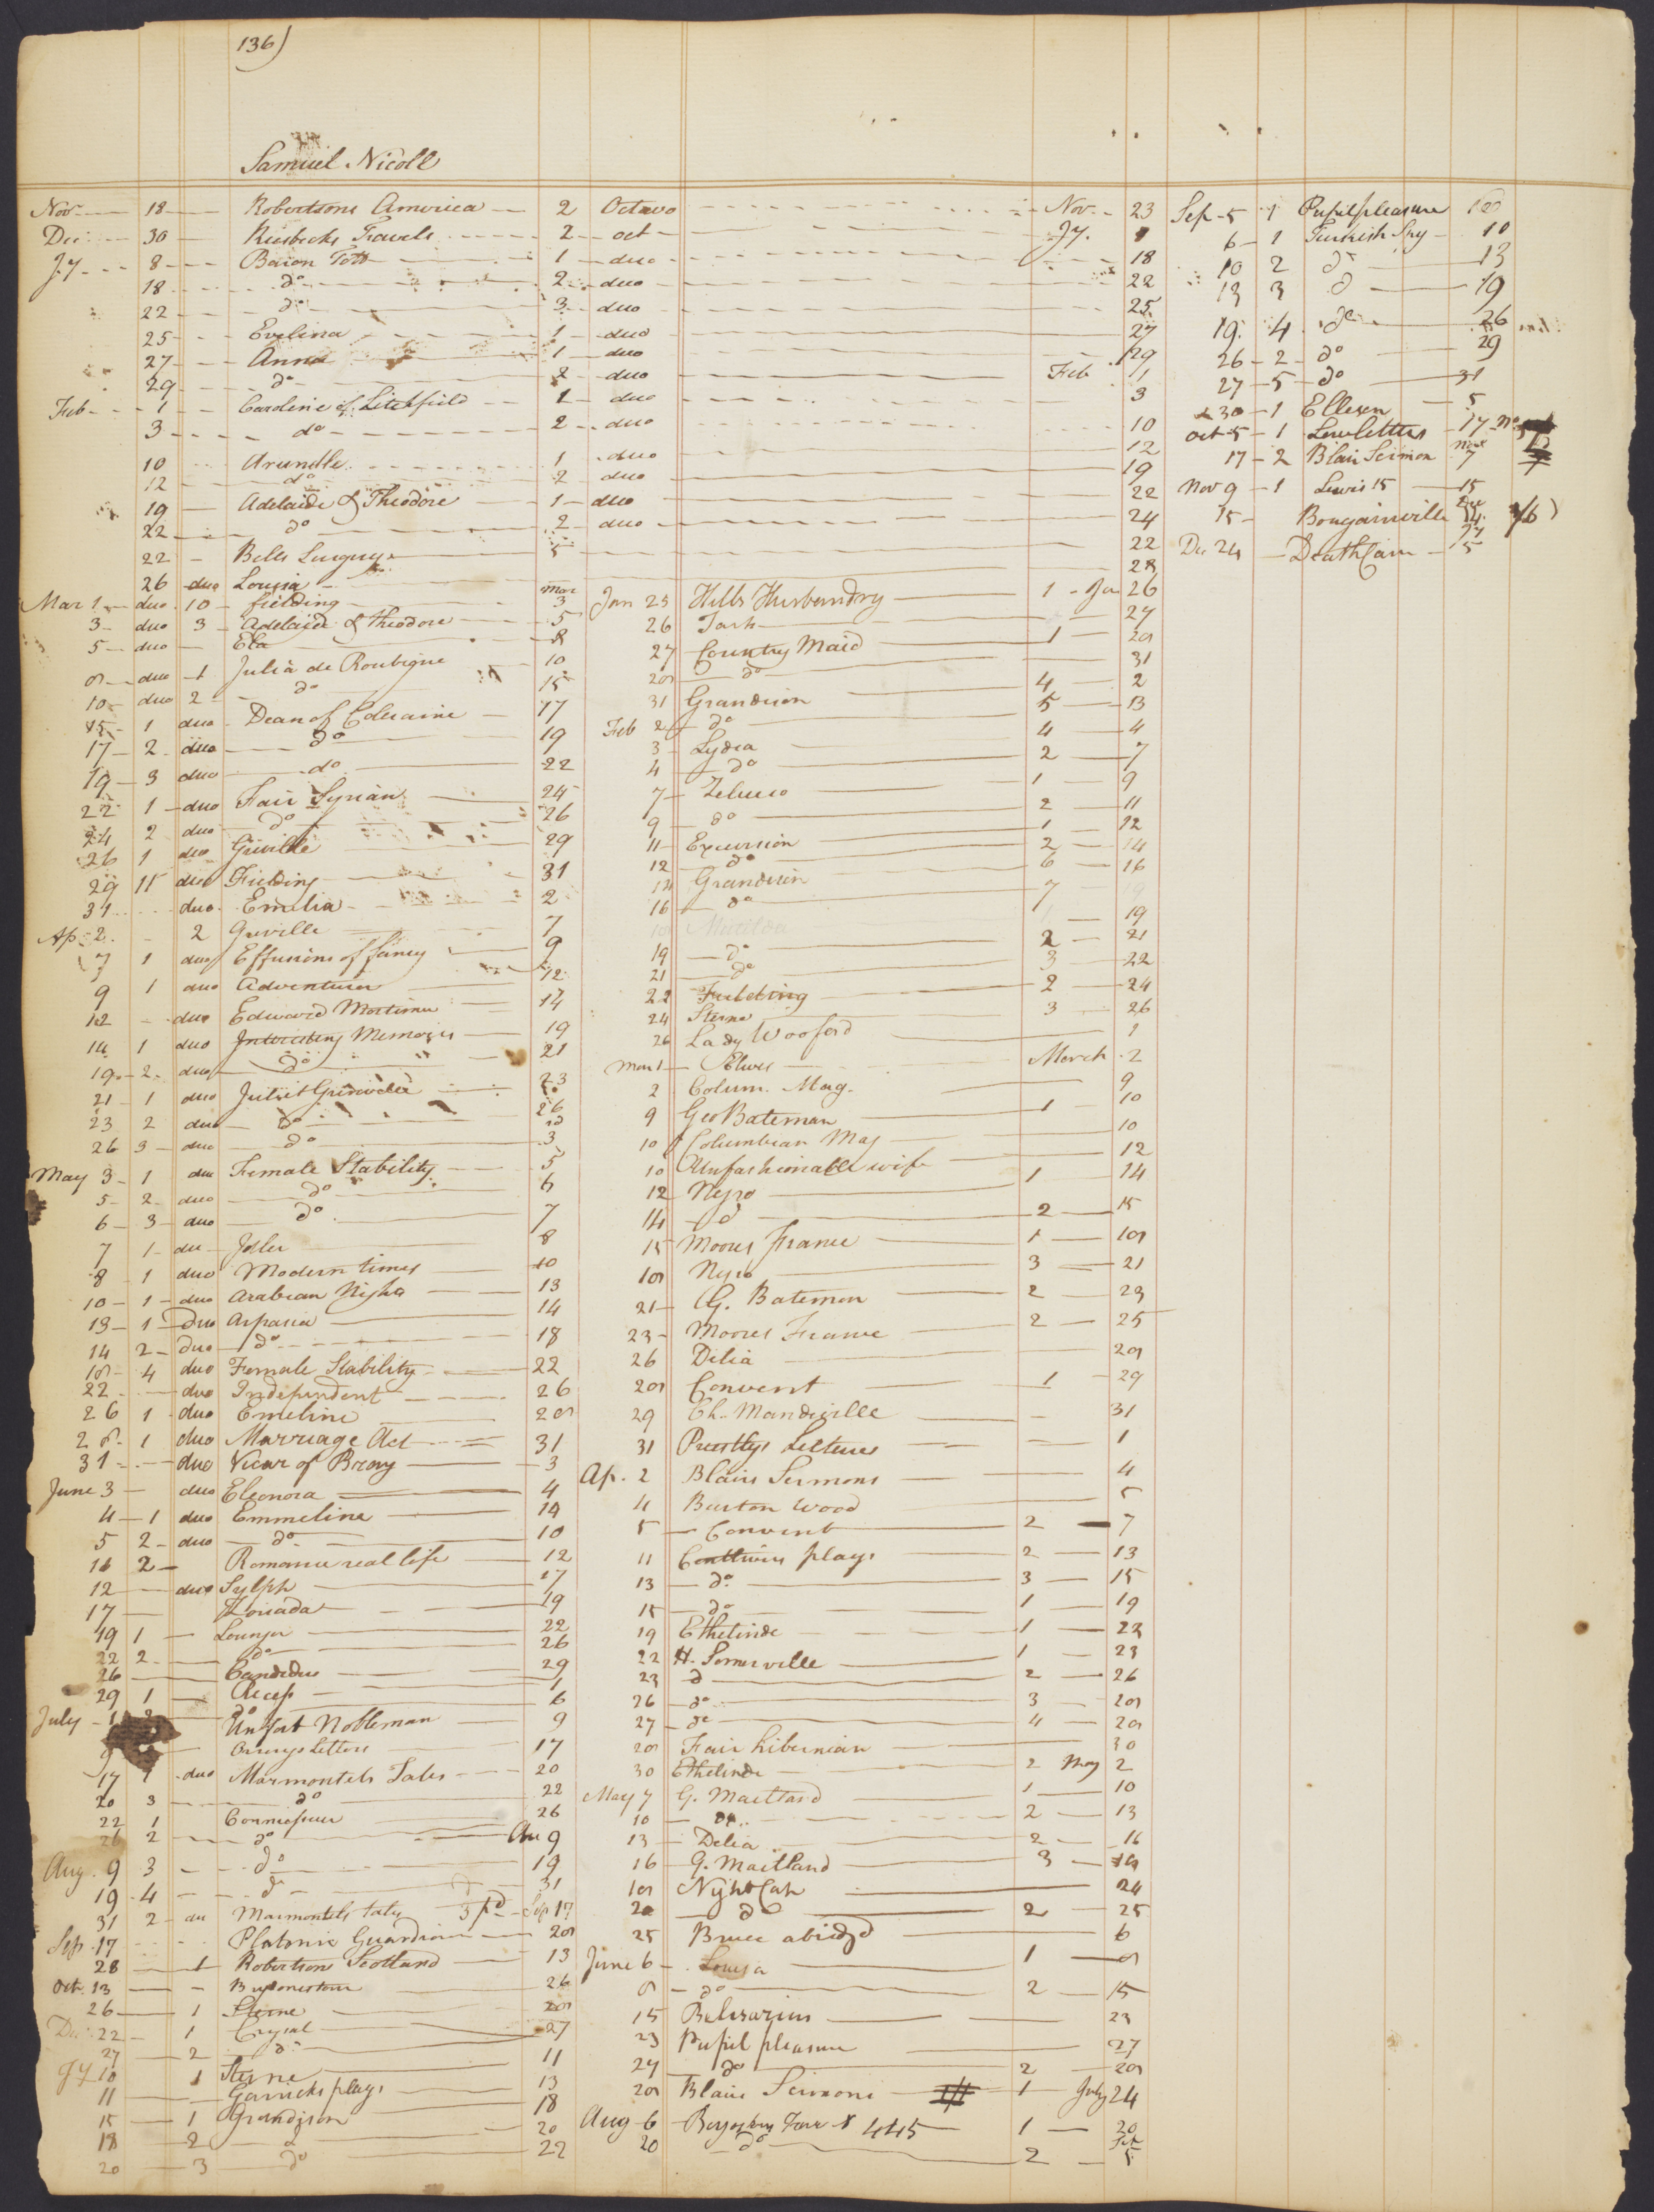 136)
Samuel Nicoll
Nov 18 Robertsons America 2 Octavo Nov. 23
Dec 30 Riesbecks Travels 2 oct Jy.
Jy 8 Baron Tott 1 duo 18
18 do 2 duo 22
22 do 3 duo 25
25 Evelina 1 duo 27
27 Anna 1 duo 29
29 do 2 duo Feb 1
Feb 1 Caroline of Litchfield 1 duo 3
3 do 2 duo 10
10 Arundle 1 duo 12
12 do 2 duo 19
19 Adelaide & Theodore 1 duo 22
22 do 2 duo 24
22 Bells Surgery 5 22
26 duo Louisa 28
Mar 1 duo 10 fielding Mar 3
3 duo 3 Adelaide & Theodore 5
5 duo Ela 8
8 duo 1 Julia de Roubigne 10
10 duo 2 do 15
15 1 duo Dean of Coleraine 17
17 2 duo do 19
19 3 duo do 22
22 1 duo Fair Syrian 24
24 2 duo do 26
26 1 duo Greville 29
29 11 duo Fielding 31
31 duo Emilia 2
Ap 2 2 Greville 7
7 1 duo Effusions of fancy 9
9 1 duo Adventurer 12
12 duo Edward Mortimer 14
14 1 duo Interesting Memoirs 19
19 2 duo do 21
21 1 duo Juliet Grenville 23
23 2 duo do 26
26 3 duo do 3
May 3 1 duo Female Stability 5
5 2 duo do 6
6 3 duo do 7
7 1 duo Idler 8
8 1 duo Modern times 10
10 1 duo Arabian Nights 13
13 1 duo Aspasia 14
14 2 duo do 18
18 4 duo Female Stability 22
22 duo Independent 26
26 1 duo Emeline 28
28 1 duo Marriage Act 31
31 duo Vicar of Bray 3
June 3 duo Eleonora 4
4 1 duo Emmeline 14
5 2 duo do 10
10 2 Romance real life 12
12 duo Sylph 17
17 Zoriada 19
19 1 Lounger 22
22 2 do 26
26 Candidus 29
29 1 Recess 1
July 1 2 do 6
Unfort Nobleman 9
9 Orrerys Letters 17
17 1 duo Marmontels Tales 20
20 3 do 22
22 1 Connoisseur 26
26 2 do Au 9
Aug. 9 3 do 19
19 4 do 31
31 2 du Marmontels tales 3 pd Sep 17
Sep. 17 Platonic Guardian 28
28 1 Robertson Scotland 13
Oct. 13 26
26 1 Sterne 28
Dec 22 1 Crysal 27
27 2 do
Jy 10 1 Sterne 11
11 Garricks plays 13
15 1 Grandison 18
18 2 do 20
20 3 do 22
Jan 25 Hills Husbandry 1 Jan 26
26 Task 27
27 Country Maid 1 28
28 do 31
31 Grandison 4 2
Feb 2 do 5 13
3 Lydia 4 4
4 do 2 7
7 Zeluco 1 9
9 do 2 11
11 Excursion 1 12
12 do 2 14
14 Grandison 6 16
16 do 7
Matilda 1 19
19 do 2 21
21 do 3 22
22 Fielding 2 24
24 Sterne 3 26
26 Lady Wooford 1
Mar 1 Elwes March 2
2 Colum. Mag. 9
9 Geo Bateman 1 10
10 Columbian Mag 10
10 Unfashionable wife 12
12 Negro 1 14
14 d 2 15
15 Moores France 1 18
18 Negro 3 21
21 G. Bateman 2 23
23 Moores France 2 25
26 Delia 28
28 Convent 1 29
29 Ch. Mandeville 31
31 Preistlys Lectures 1
Ap. 2 Blairs Sermons 4
4 Burton Wood 5
5 Convent 2 7
11 Centlivres plays 2 13
13 do 3 15
15 do 1 19
19 Ethelinde 1 23
22 H. Somerville 1 23
23 d 2 26
26 do 3 28
27 do 4 28
28 Fair hibernian 30
30 Ethelinde 2 May 2
May 7 G. Maitland 1 10
10 do 2 13
13 Delia 2 16
16 G. Maitland 3 18
18 Night Cap 24
20 do 2 25
25 Bruce abridgd 6
June 6 Louisa 1 8
8 do 2 15
15 Belisarius 23
23 Pupil pleasure 27
27 do 2 28
28 Blairs Sermons 1 July 24
Aug 6 4445 1 20
20 do 2 Sep 5
Sep 5 1 Pupil pleasure
6 1 Turkish Spy 10
10 2 do 13
13 3 d 19
19 4 do 26
26 2 do 29
27 5 do 31
30 1 Ellesen 5
Oct 5 1 17
17 2 Blair Sermon Nov 7
Nov 9 1 Lewis 15 15
15 Bougainville Dec 24 3/6)
Dec 24 Death Cain 5